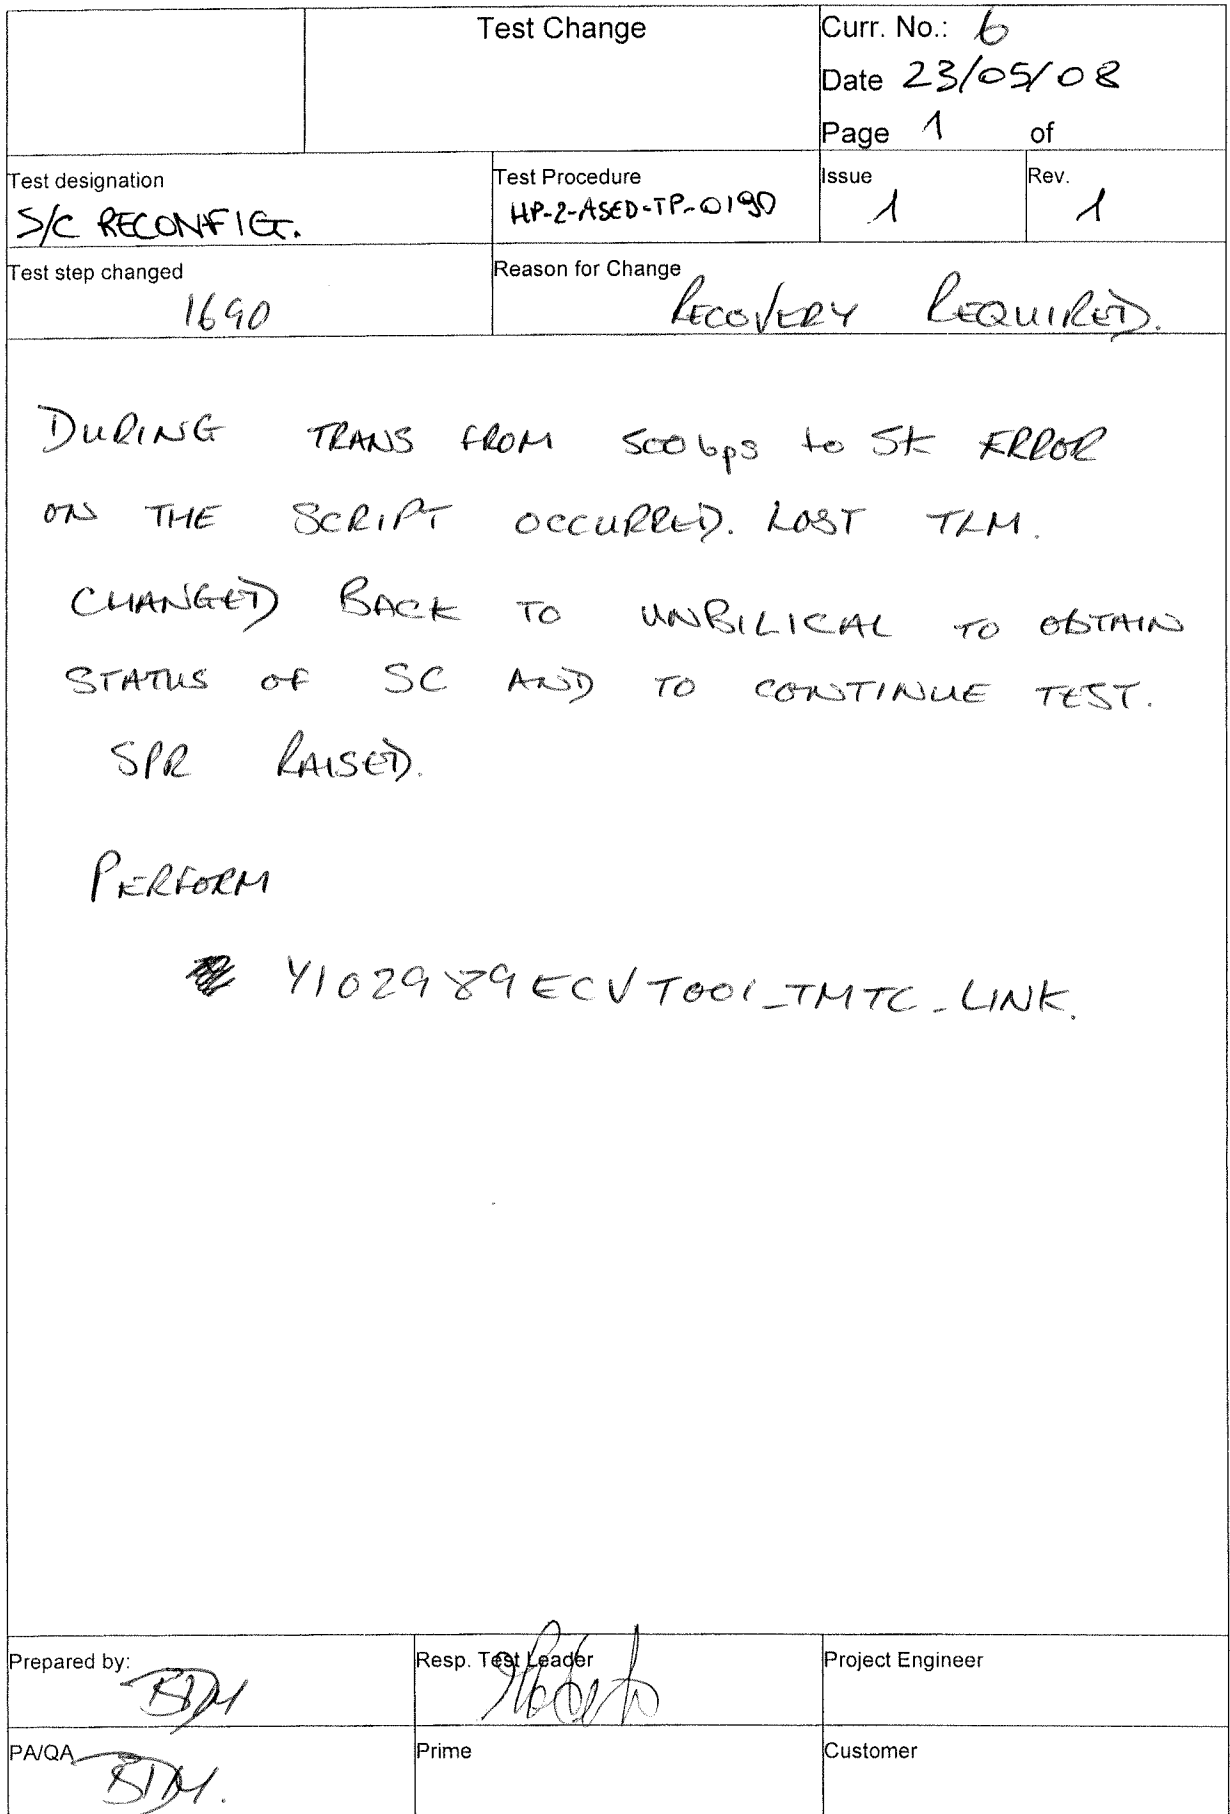 Test Change
Curr. No.: 6
Date 23/05/08
Page 1 of
Test designation
S/C RECONFIG.
Test Procedure
HP-2-ASED-TP-0190
Issue
1
Rev.
1
Test step changed
1690
Reason for Change
RECOVERY REQUIRED.
DURING TRANS FROM 500bps to 5K ERROR
ON THE SCRIPT OCCURRED. LOST TLM.
CHANGED BACK TO UNBILICAL TO OBTAIN
STATUS OF SC AND TO CONTINUE TEST.
SPR RAISED.
PERFORM
Y102989ECVT001_TMTC_LINK.
Prepared by:
BDM
Resp. Test Leader
Project Engineer
PA/QA
BDM.
Prime
Customer